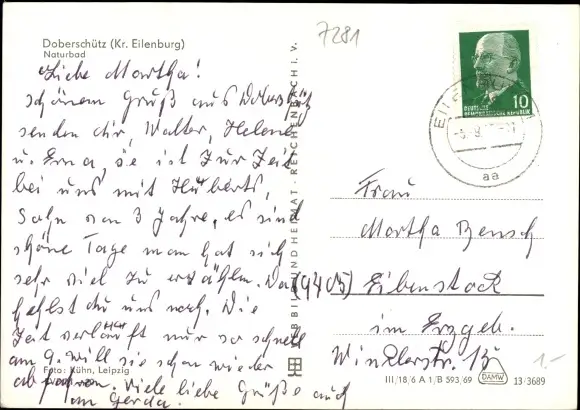 7281
Doberschütz (Kr. Eilenburg)
Naturbad
Liebe Martha!
schönen Gruß aus Doberschütz
senden dir, Walter, Helene
u. Erna, sie ist zur Zeit
bei uns mit Huberts,
Sohn von 3 Jahre, es sind
schöne Tage man hat sich
sehr viel zu erzählen. Da
fehlst du uns noch. Die
Zeit verläuft nur so schnell
am 9. will sie schon wieder
Foto: Kühn, Leipzig
abfahren. Viele liebe Grüße auch
an Gerda.
BILD UND HEIMAT · REICHENBACH I. V.
DEUTSCHE
DEMOKRATISCHE REPUBLIK
10
aa
Frau
Martha Bensch
(9405) Eibenstock
im Erzgeb.
Winklerstr. 13
1.-
III/18/6 A 1/B 593/69
DAMW
13/3689